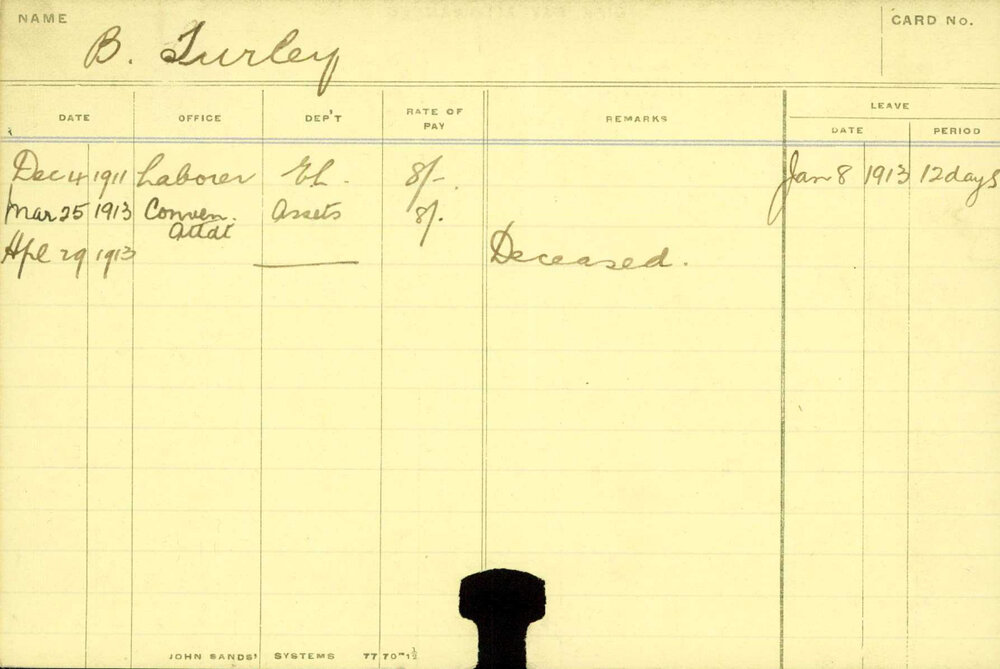 NAME
CARD No.
B. Turley
DATE OFFICE DEP'T RATE OF PAY REMARKS LEAVE
DATE PERIOD
Dec 4 1911 Laborer EL. 8/-. Jan 8 1913 12 days
Mar 25 1913 Conven. Assets 8/.
Attdt
Apl 29 1913 Deceased.
JOHN SANDS' SYSTEMS